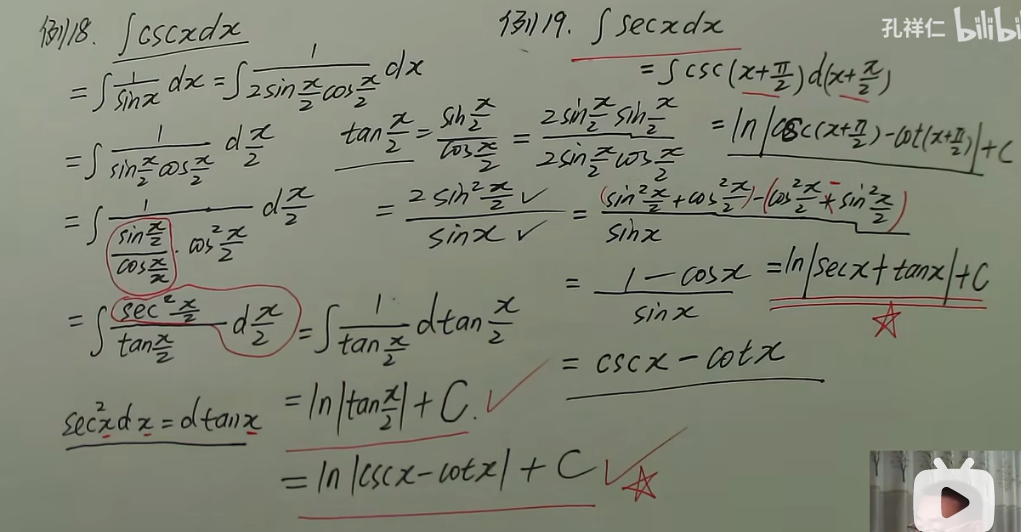 例18. ∫cscxdx
= ∫ 1/sinx dx = ∫ 1/(2sin x/2 cos x/2) dx
= ∫ 1/(sin x/2 cos x/2) d x/2
= ∫ 1/((sin x/2)/(cos x/x) · cos² x/2) d x/2
= ∫ (sec² x/2)/(tan x/2) d x/2 = ∫ 1/(tan x/2) dtan x/2
sec²xdx = dtanx
= ln|tan x/2| + C.
= ln|cscx-cotx| + C
tan x/2 = (sin x/2)/(cos x/2) = (2sin x/2 sin x/2)/(2sin x/2 cos x/2)
= (2sin² x/2)/sinx = ((sin² x/2 + cos² x/2) - (cos² x/2 - sin² x/2))/sinx
= (1-cosx)/sinx
= cscx-cotx
例19. ∫secxdx
= ∫csc(x+π/2)d(x+π/2)
= ln|csc(x+π/2)-cot(x+π/2)|+C
= ln|secx+tanx|+C
孔祥仁 bilibi